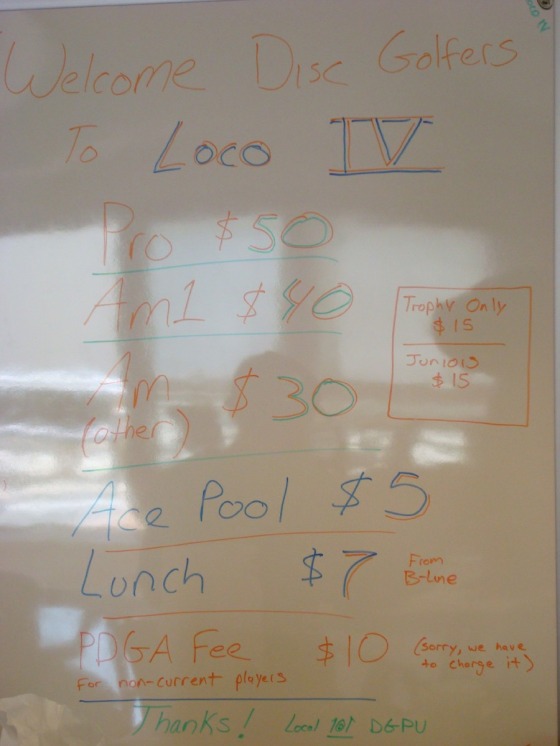 Welcome Disc Golfers
To Loco IV
Pro $50
Am1 $40
Am $30
(other)
Trophy Only
$15
Juniors
$15
Ace Pool $5
Lunch $7
From
B-Line
PDGA Fee $10
For non-current players
(sorry, we have
to charge it)
Thanks! Local DGPU